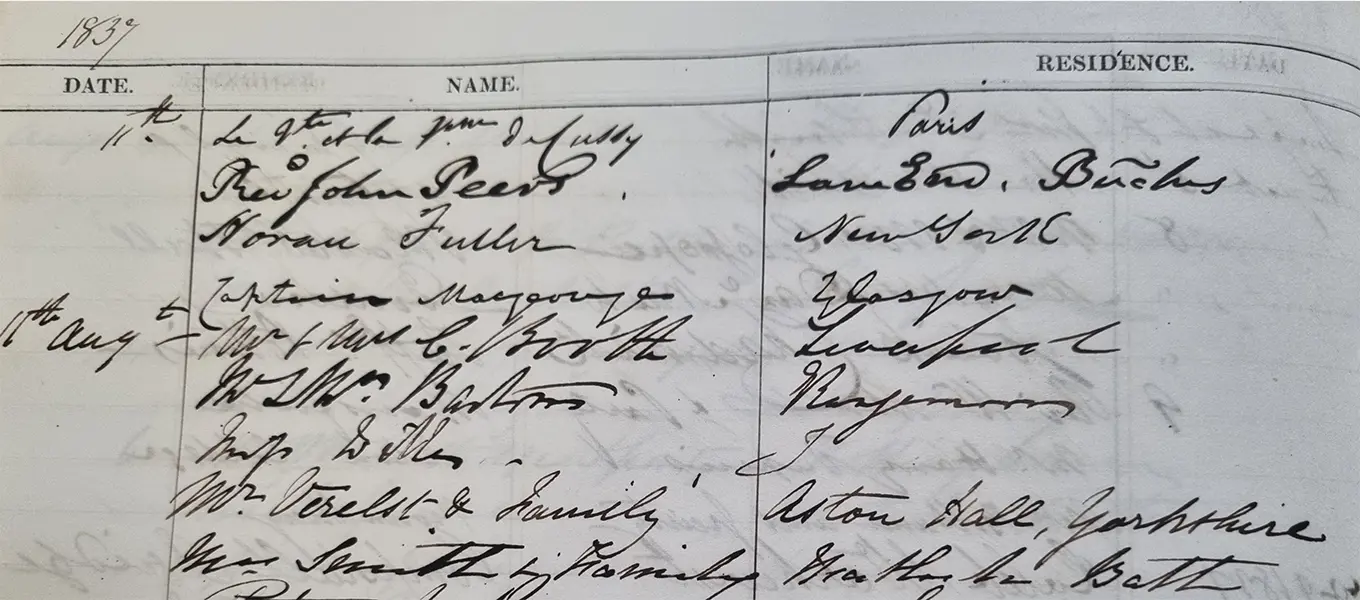 1837
DATE. NAME. RESIDENCE.
11th Le Vte et la Vtesse de Cussy Paris
Revd John Peers Lane End, Bucks
Horace Fuller New York
Captain Macgeorge Glasgow
11th Augt Mr & Mrs C. Booth Liverpool
Mr & Mrs
Miss
Mr Verelst & Family Aston Hall, Yorkshire
Mrs Smith & Family Bath